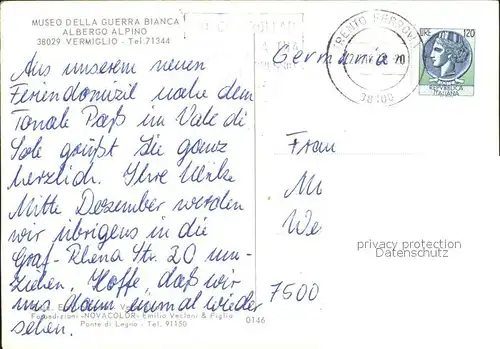 MUSEO DELLA GUERRA BIANCA
ALBERGO ALPINO
38029 VERMIGLIO - Tel. 71344
TRENTO FERROVIA
38100
LIRE 120
REPVBBLICA
ITALIANA
Germania
Aus unserem neuen
Feriendomizil nahe dem
Tonale Paß im Vale di
Sole grüßt Sie ganz
herzlich. Ihre Ulrike
Mitte Dezember werden
wir übrigens in die
Graf-Rhena Str. 20 um-
ziehen. Hoffe, daß wir
uns dann einmal wieder
sehen.
Frau
M
We
7500
privacy protection
Datenschutz
Fotoedizioni «NOVACOLOR» Emilio Veclani & Figlia
Ponte di Legno - Tel. 91150
0146